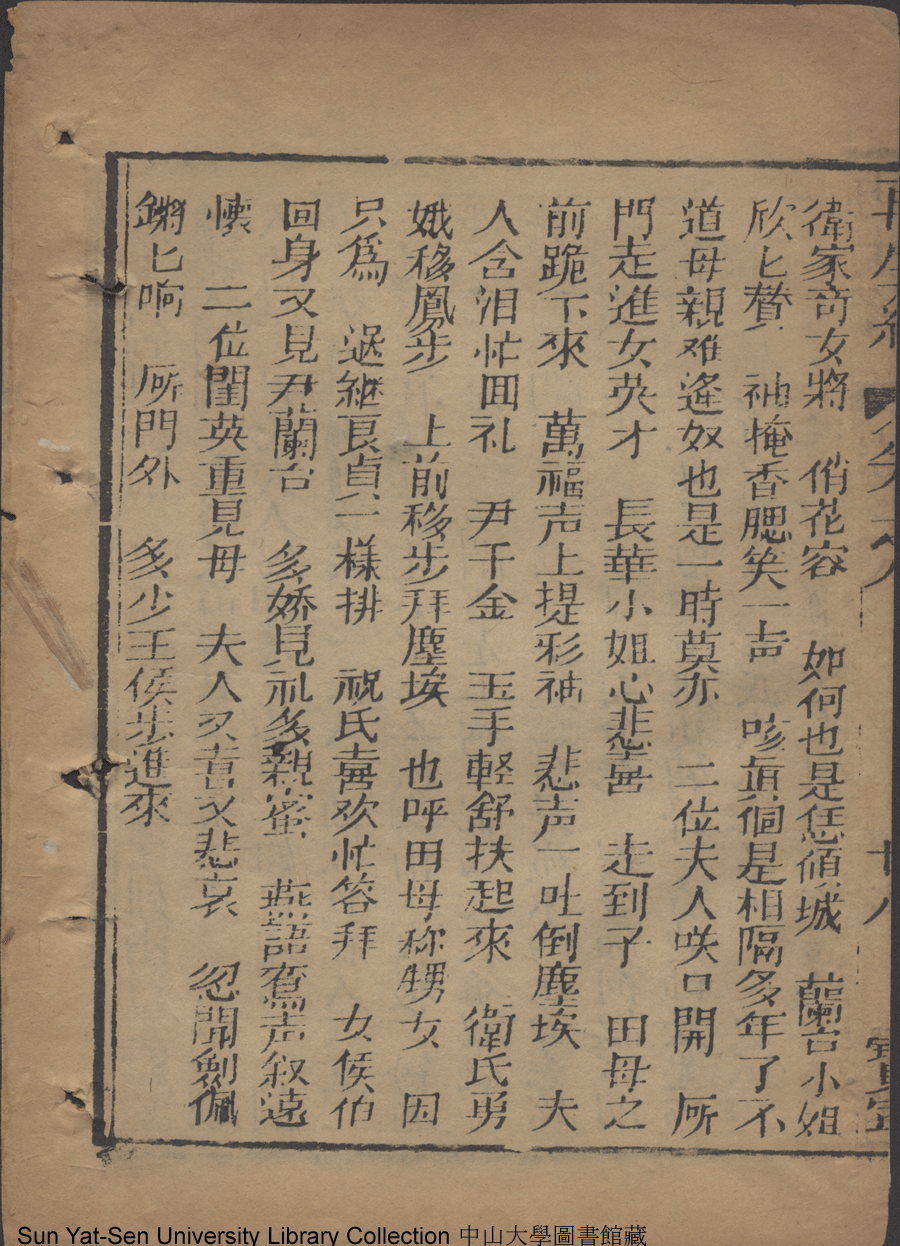 衛家奇女將 俏花容 如何也是恁傾城 蘭台小姐
欣匕贊 袖掩香腮笑一声 咳眞個是相隔多年了不
道母親难逢奴也是一時莫亦 二位夫人咲口開 𠩄
門走進女英才 長華小姐心悲𠳮 走到子 田母之
前跪下來 萬福声上提彩袖 悲声一吐倒塵埃 夫
人含泪忙回礼 尹千金 玉手輕舒扶起來 衛氏勇
娥移鳳步 上前移步拜塵埃 也呼田母称甥女 因
只爲 送継良貞一樣排 祝氏喜欢忙答拜 女侯伯
回身又見尹蘭台 多嬌見礼多親蜜 燕語鶯声叙遠
懷 二位閨英重見母 夫人又喜又悲哀 忽聞劍佩
鏘匕响 𠩄門外 多少王侯步進來
再生緣 卷六 十八 寶
Sun Yat-Sen University Library Collection 中山大學圖書館藏